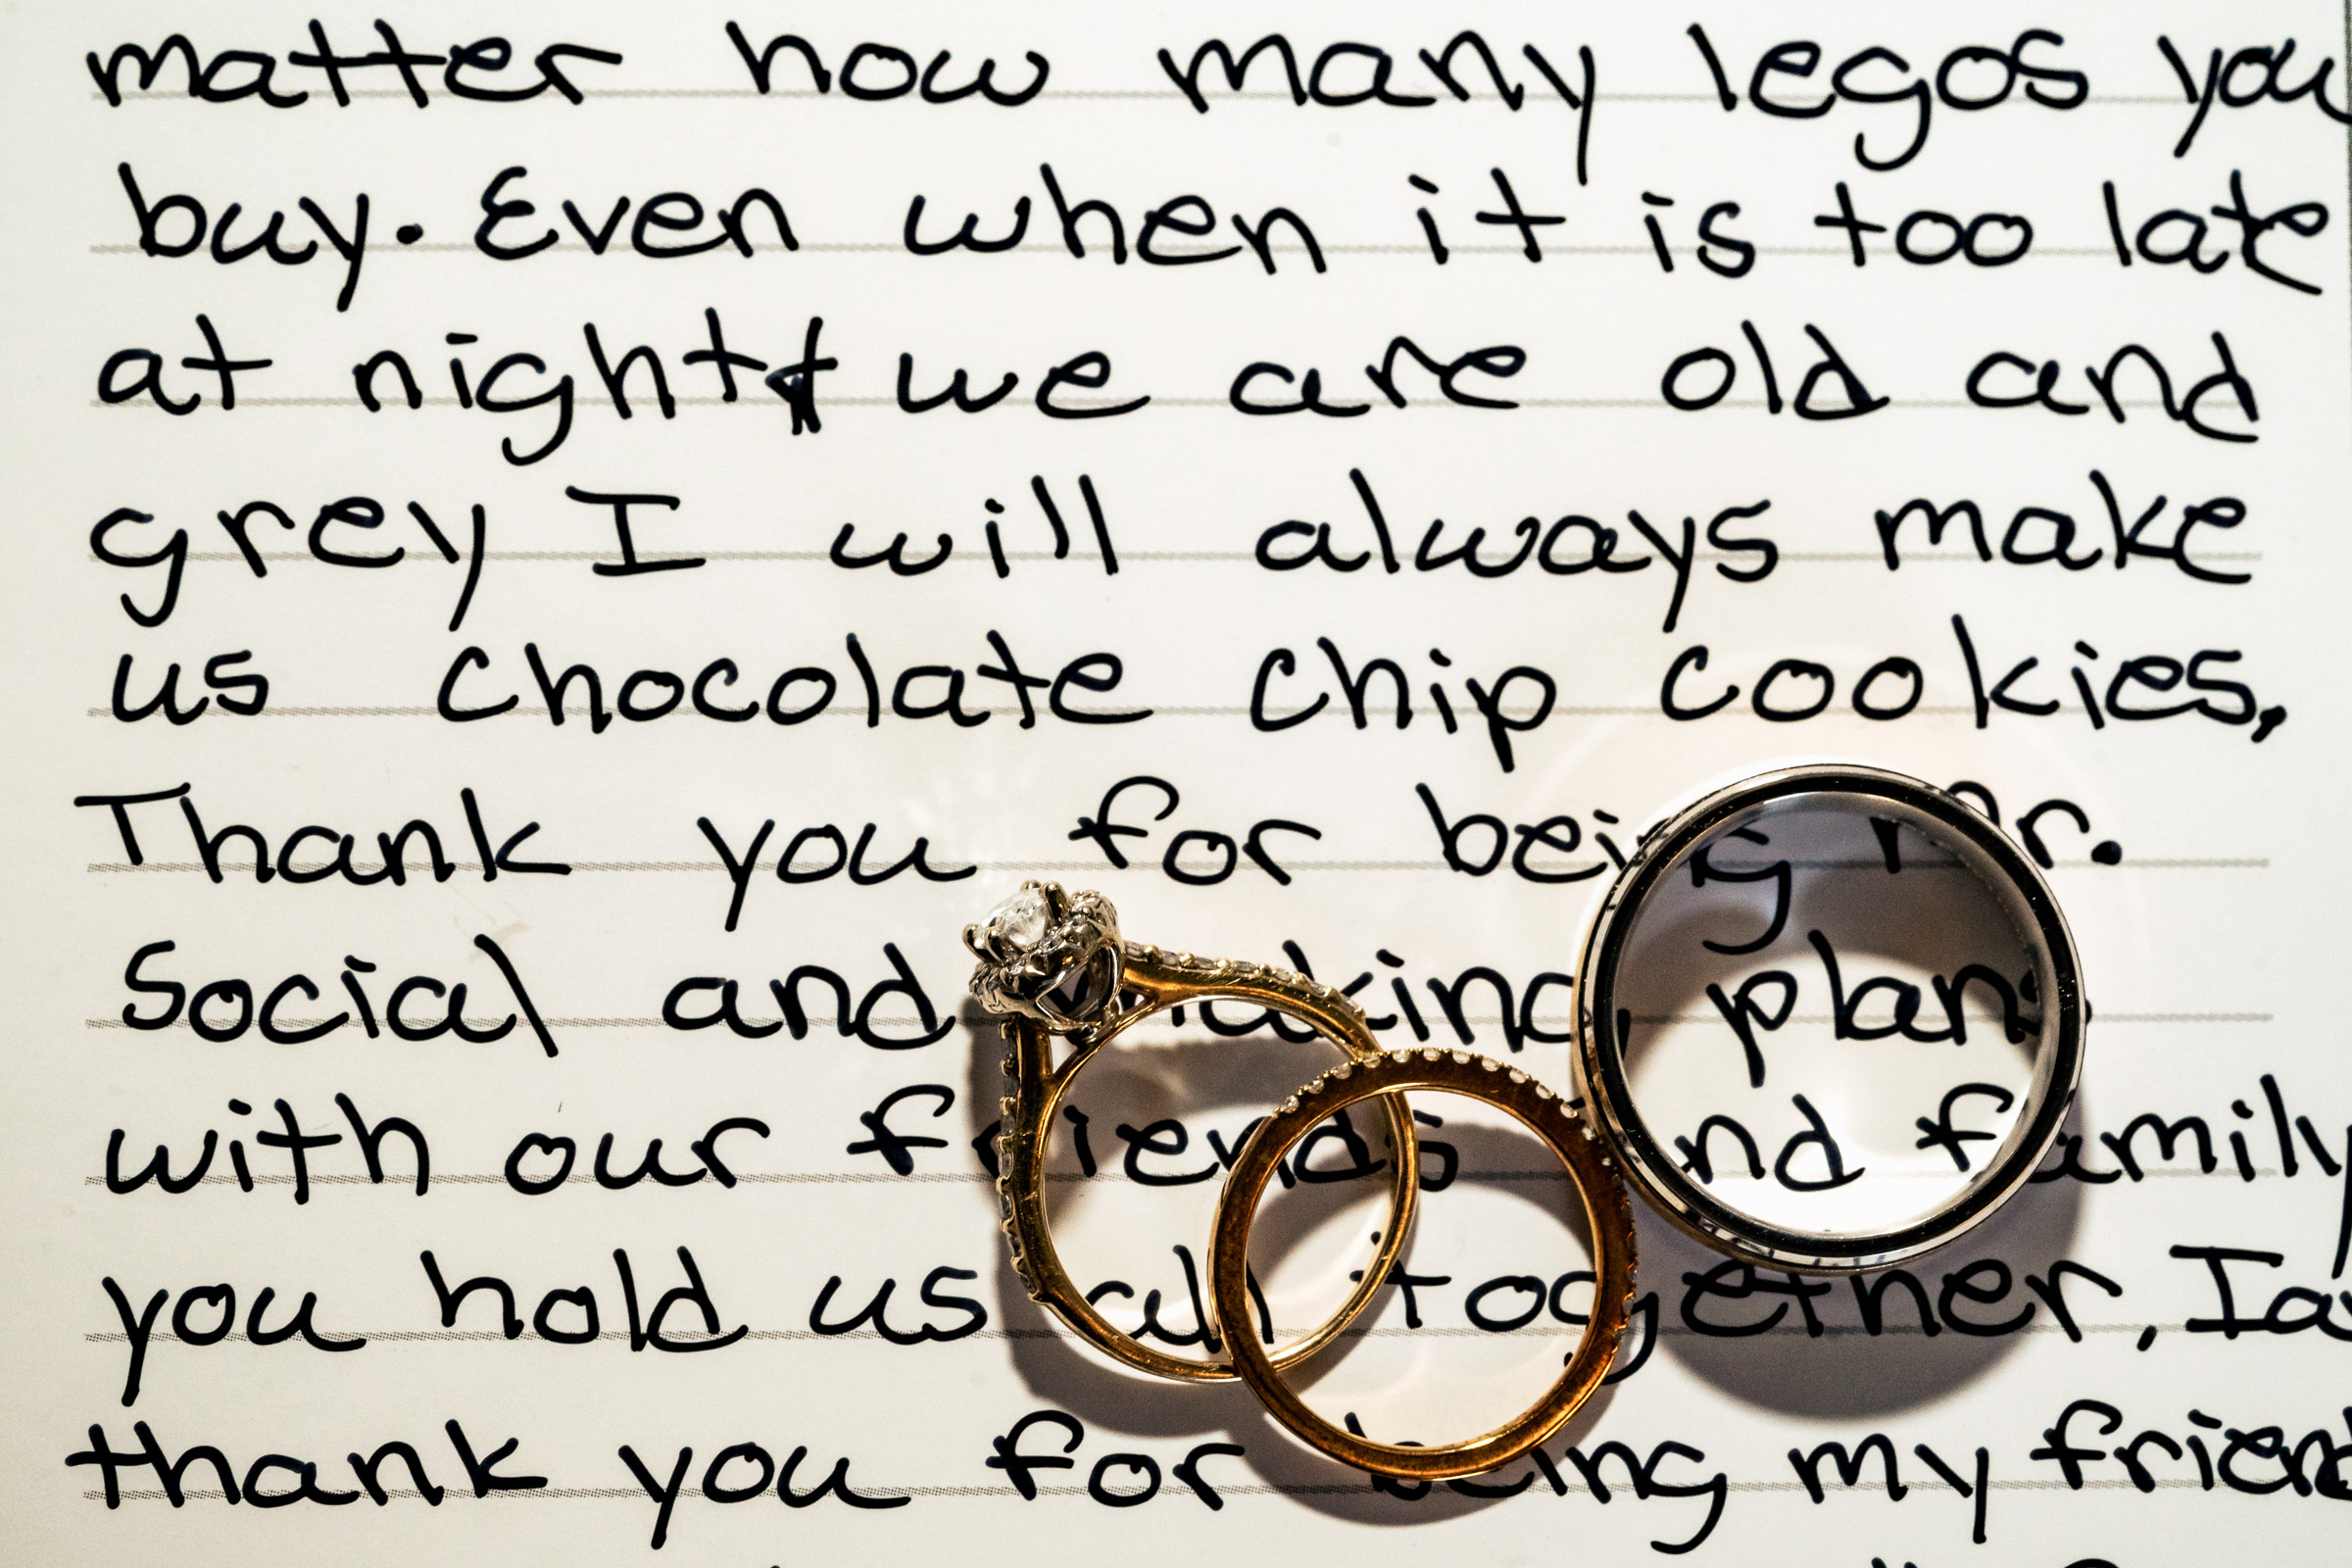 matter how many legos you
buy. Even when it is too late
at night & we are old and
grey I will always make
us chocolate chip cookies,
Thank you for being Mr.
Social and making plans
with our friends and family,
you hold us all together, I a
thank you for being my friend